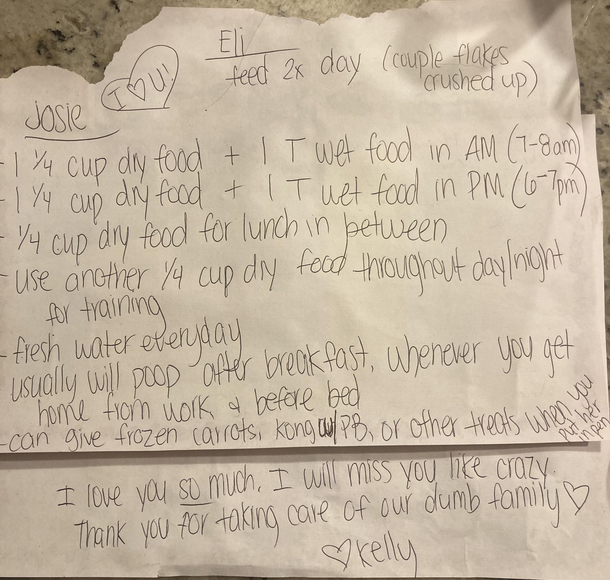 Eli
feed 2x day (couple flakes
crushed up)
I ♡ U!
Josie
- 1 1/4 cup dry food + 1 T wet food in AM (7-8am)
- 1 1/4 cup dry food + 1 T wet food in PM (6-7pm)
- 1/4 cup dry food for lunch in between
- use another 1/4 cup dry food throughout day/night
for training
- fresh water everyday
usually will poop after breakfast, whenever you get
home from work, & before bed
- can give frozen carrots, kong w/ PB, or other treats when you
put her
in pen
I love you so much. I will miss you like crazy.
Thank you for taking care of our dumb family ♡
♡ Kelly